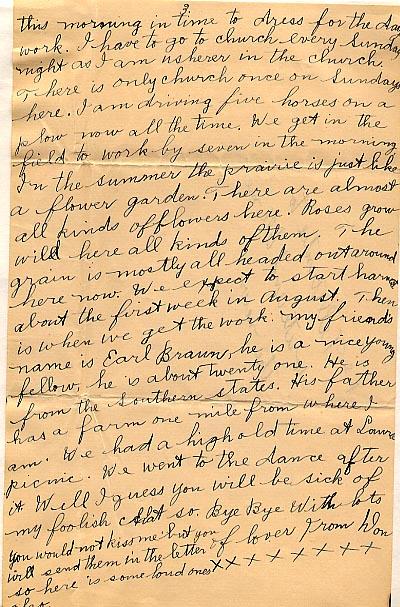 3.
this morning in time to dress for the day
work. I have to go to church every Sunday
night as I am usherer in the church.
There is only church once on Sundays
here. I am driving five horses on a
plow now all the time. We get in the
field to work by seven in the morning
In the summer the prairie is just like
a flower garden. There are almost
all kinds off flowers here. Roses grow
wild here all kinds of them. The
grain is mostly all headed out around
here now. We expect to start harvest
about the first week in August. Then
is when we get the work. my friends
name is Earl Braun, he is a nice young
fellow, he is about twenty one. He is
from the Southern states. His father
has a farm one mile from where I
am. We had a high old time at
picnic. We went to the dance after
it Well I guess you will be sick of
my foolish chat so. Bye Bye With lots
of love from Don
you would not kiss me but you
will send them in the letter
so here is some loud ones x x x x x x x x x
also.